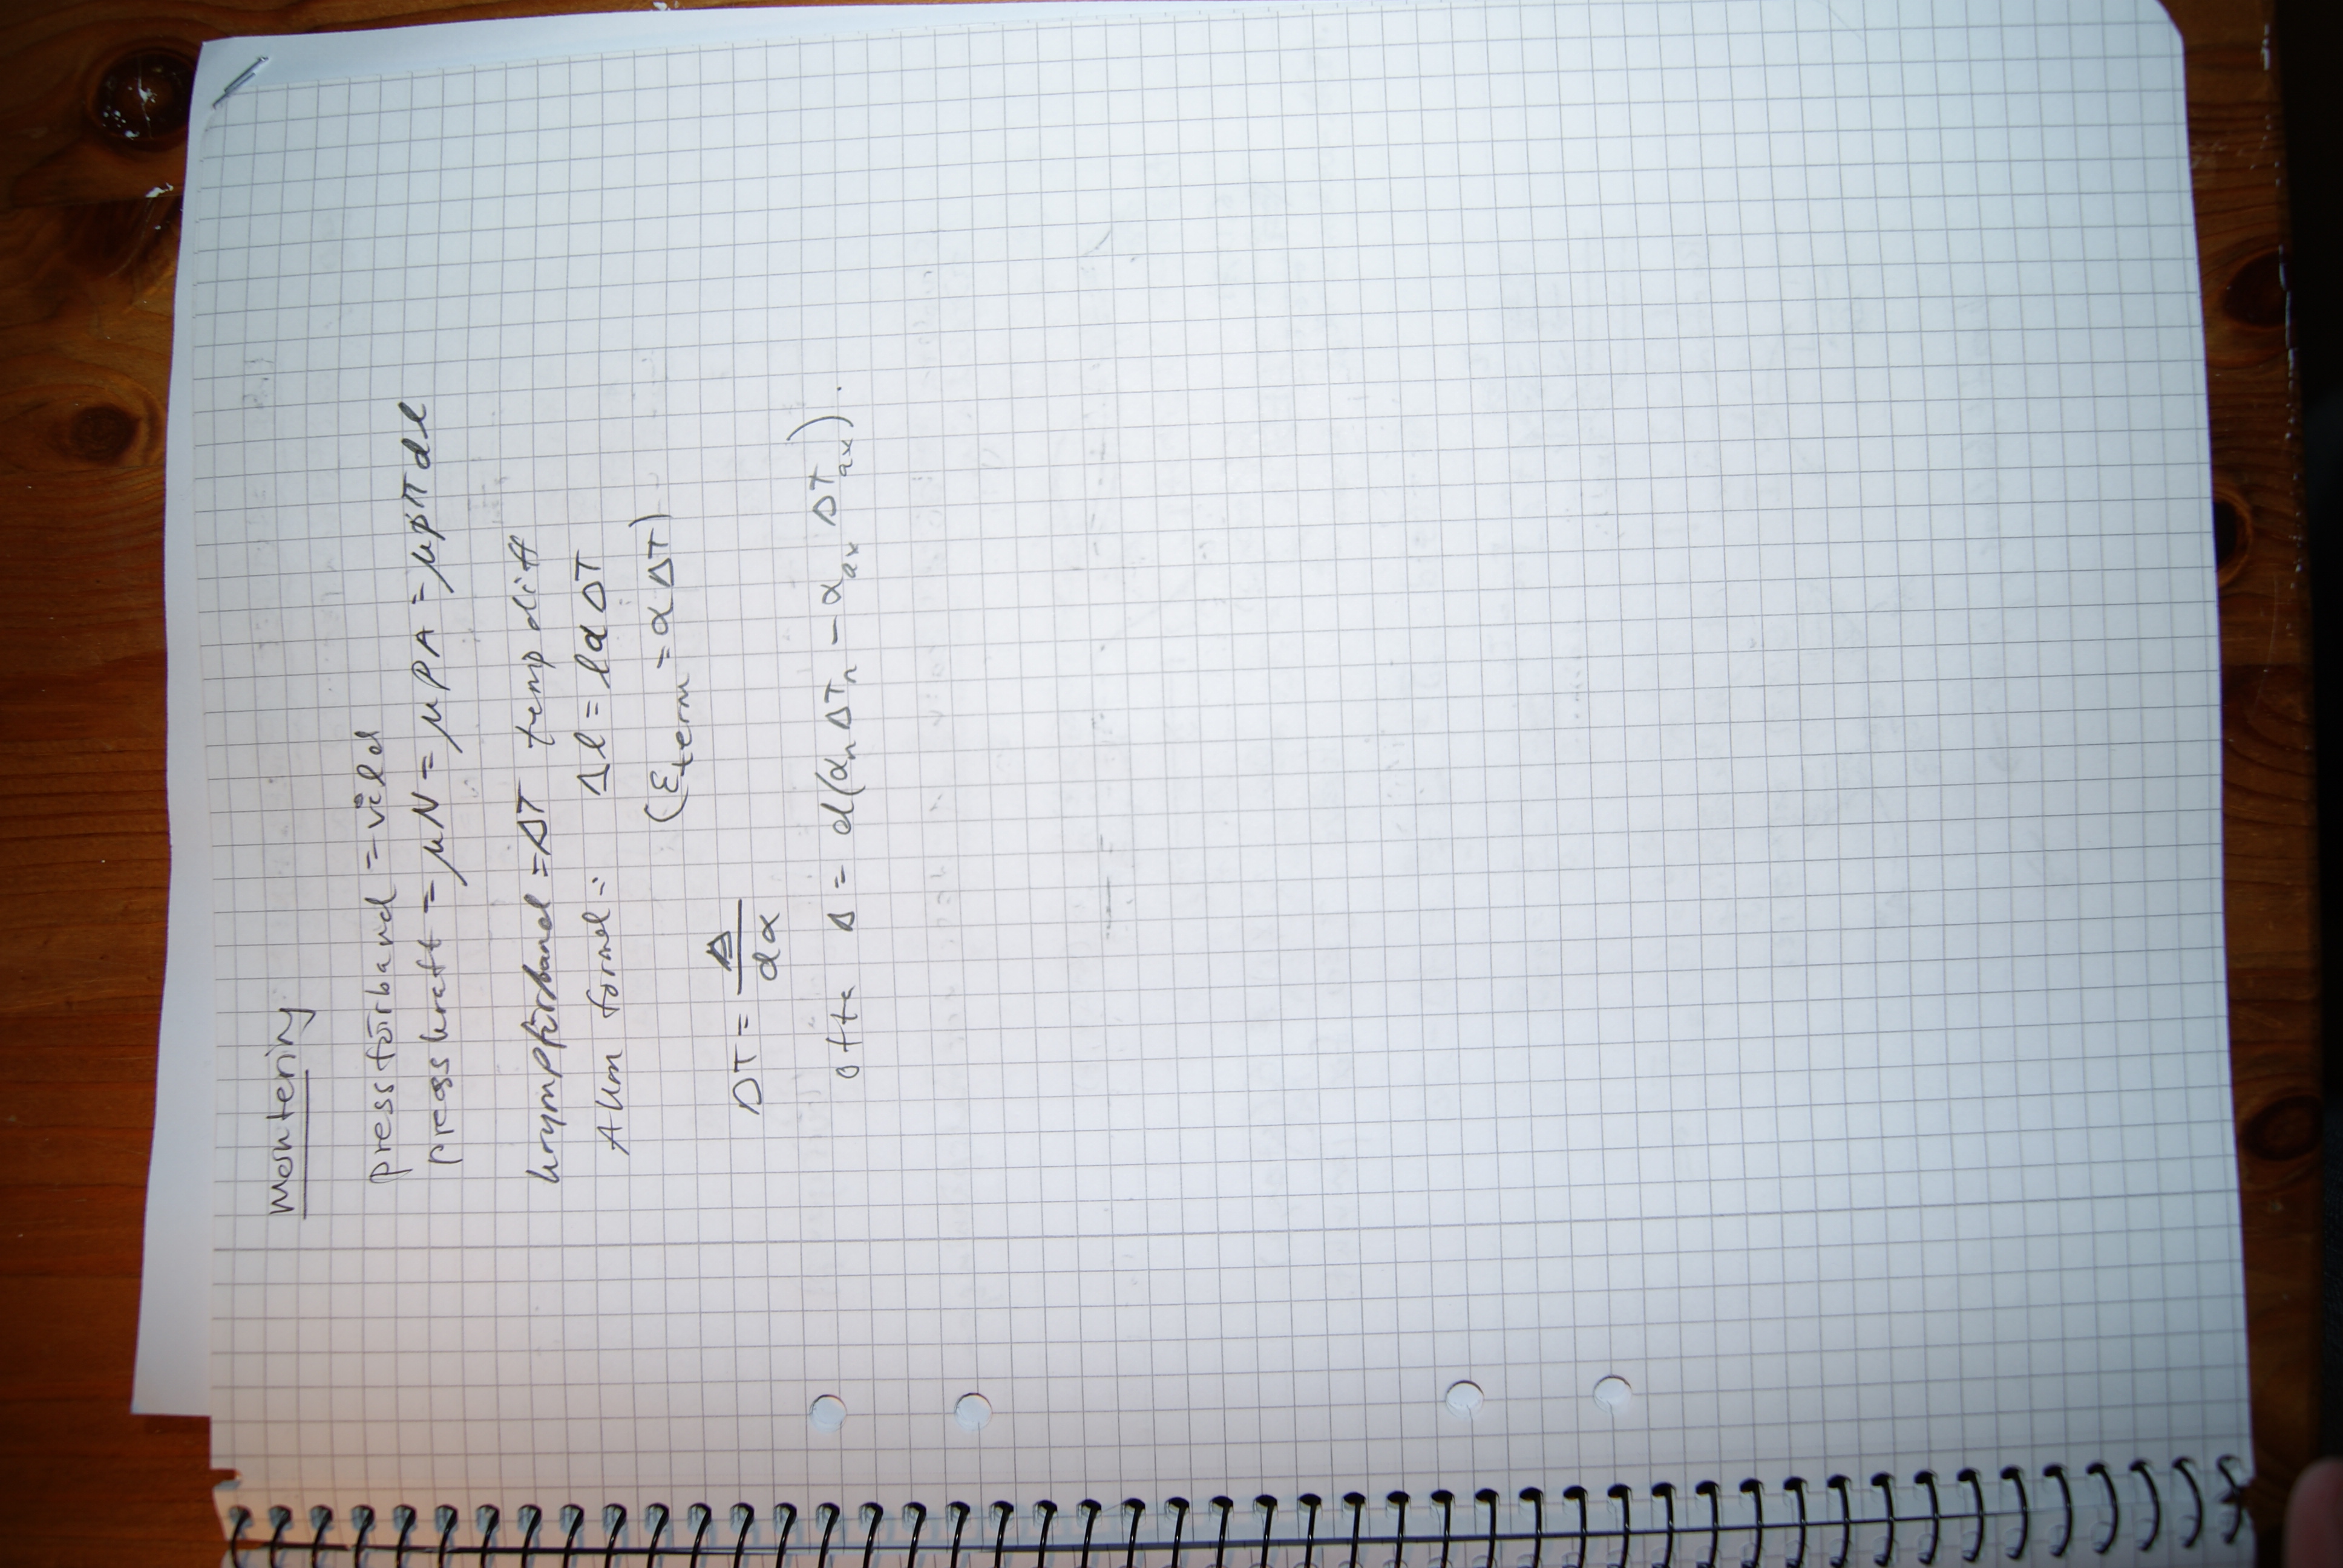 Montering
pressförband = våld
presskraft = μN = μPA = μpπdl
krympförband = ΔT temp diff
Allm formel: Δl = lαΔT
(εterm = αΔT)
ΔT = Δ/dα
ofta Δ = d(αnΔTn - αaxΔTax).